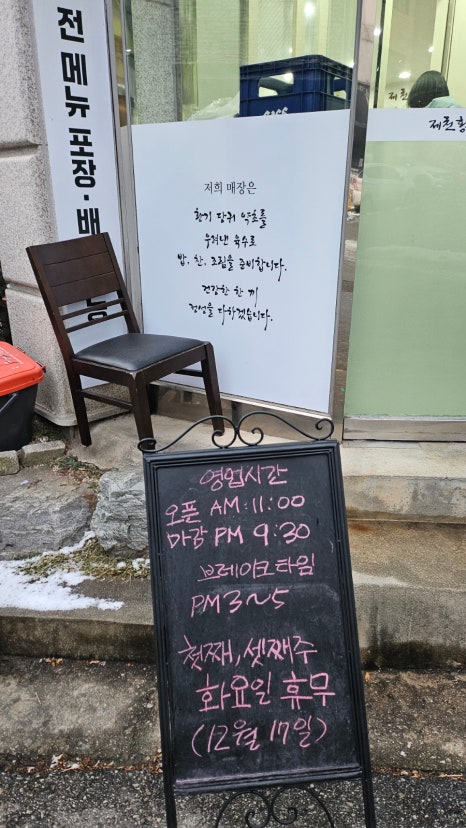 전 메뉴 포장·배
저희 매장은
황기 당귀 약초를
우려낸 육수로
밥, 찬, 조림을 준비합니다.
건강한 한 끼
정성을 다하겠습니다.
영업시간
오픈 AM : 11:00
마감 PM 9:30
브레이크타임
PM 3~5
첫째, 셋째주
화요일 휴무
(12월 17일)